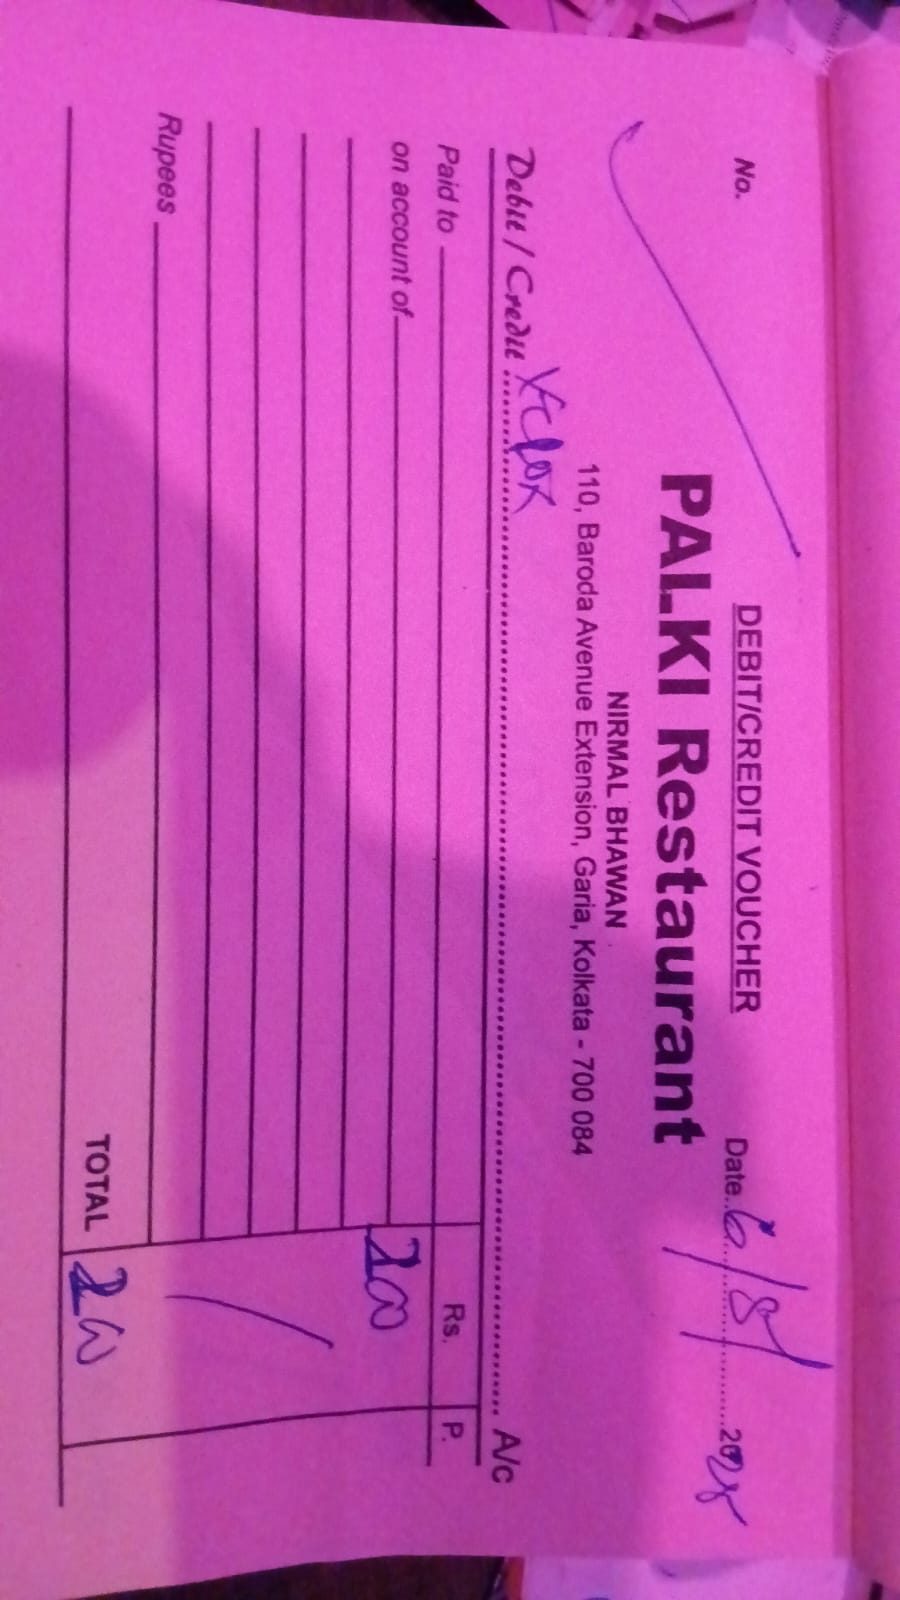 DEBIT/CREDIT VOUCHER
No.
Date 6/8/ 2028
PALKI Restaurant
NIRMAL BHAWAN
110, Baroda Avenue Extension, Garia, Kolkata - 700 084
Debit / Credit Xerox A/c
Paid to Rs. P.
on account of 200
Rupees
TOTAL 200